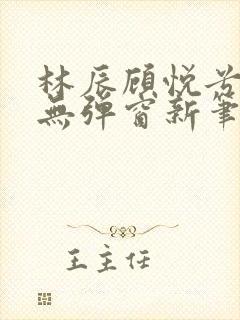 林辰顾悦兮
無彈窗新筆
王主任